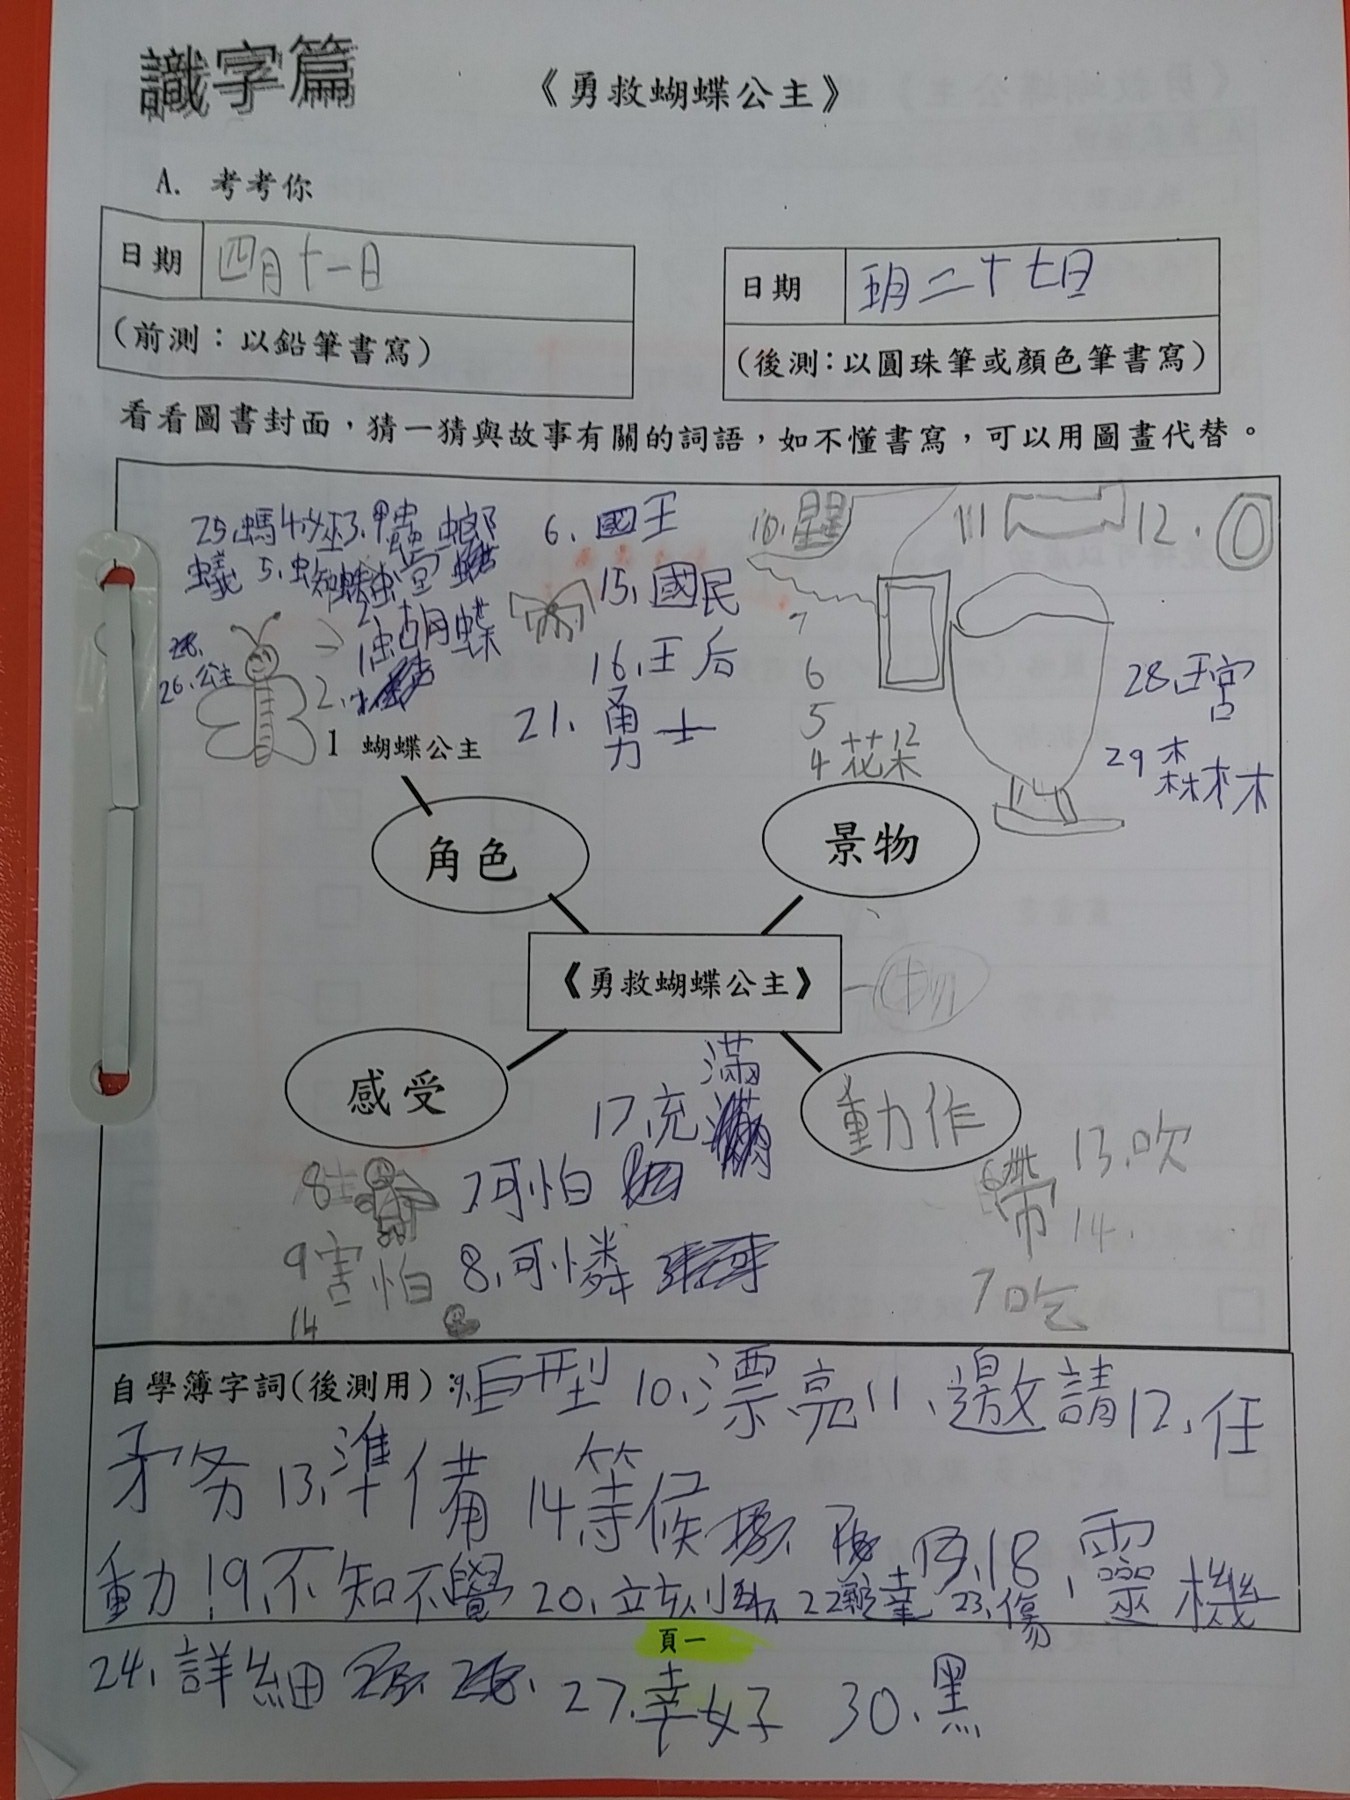 識字篇
《勇救蝴蝶公主》
A. 考考你
日期 四月十一日
(前測：以鉛筆書寫)
日期 五月二十七日
(後測：以圓珠筆或顏色筆書寫)
看看圖書封面，猜一猜與故事有關的詞語，如不懂書寫，可以用圖畫代替。
25.螞蟻
5.蜘蛛
3.
1.蝴蝶
2.
26.公主
1 蝴蝶公主
6.國王
15.國民
16.王后
21.勇士
10.星星
11
12.
7
6
5
4 花朵
28.王宮
29 森林
14
角色
景物
《勇救蝴蝶公主》
物
感受
動作
17.充滿
8
7.可怕
9害怕
8.可憐
14
6帶
13.吹
14.
7吃
自學簿字詞(後測用)：9.巨型 10.漂亮 11.邀請 12.任
務 13.準備 14.等候 18.靈機
動 19.不知不覺 20.立刻 22 23.傷
頁一
24.詳細 27.幸好 30.黑